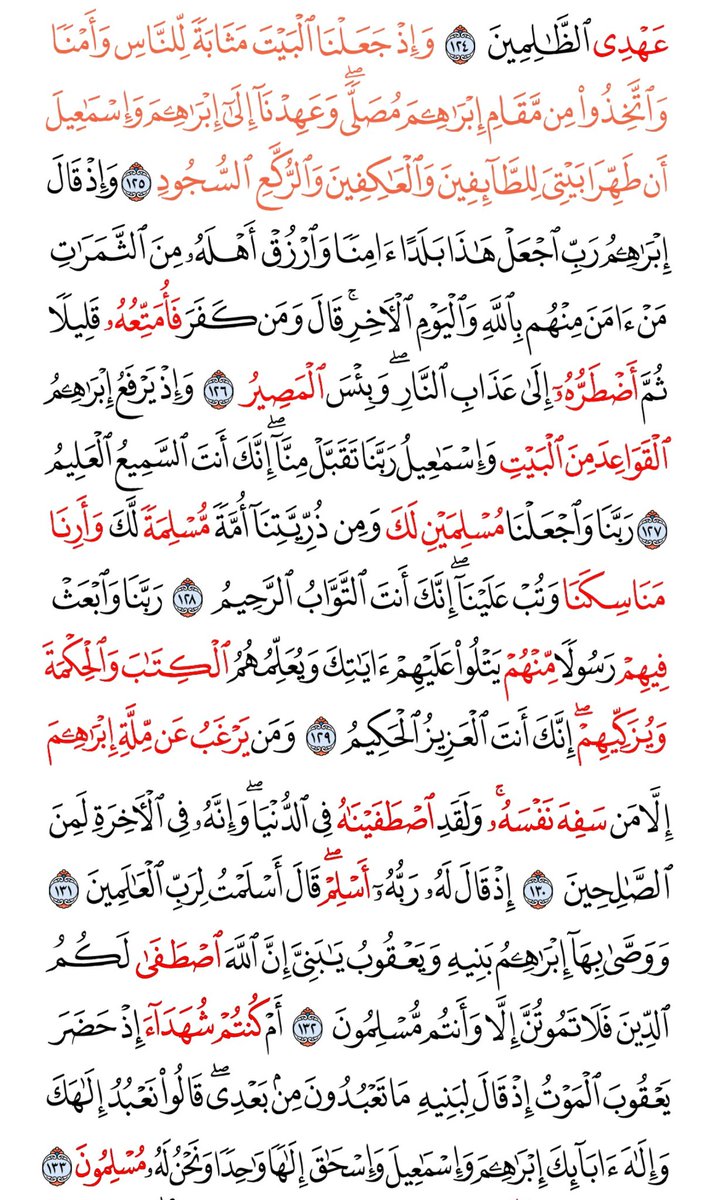 عَهۡدِي ٱلظَّٰلِمِينَ ١٢٤ وَإِذۡ جَعَلۡنَا ٱلۡبَيۡتَ مَثَابَةٗ لِّلنَّاسِ وَأَمۡنٗا
وَٱتَّخِذُواْ مِن مَّقَامِ إِبۡرَٰهِـۧمَ مُصَلّٗىۖ وَعَهِدۡنَآ إِلَىٰٓ إِبۡرَٰهِـۧمَ وَإِسۡمَٰعِيلَ
أَن طَهِّرَا بَيۡتِيَ لِلطَّآئِفِينَ وَٱلۡعَٰكِفِينَ وَٱلرُّكَّعِ ٱلسُّجُودِ ١٢٥ وَإِذۡ قَالَ
إِبۡرَٰهِـۧمُ رَبِّ ٱجۡعَلۡ هَٰذَا بَلَدًا ءَامِنٗا وَٱرۡزُقۡ أَهۡلَهُۥ مِنَ ٱلثَّمَرَٰتِ
مَنۡ ءَامَنَ مِنۡهُم بِٱللَّهِ وَٱلۡيَوۡمِ ٱلۡأٓخِرِۚ قَالَ وَمَن كَفَرَ فَأُمَتِّعُهُۥ قَلِيلٗا
ثُمَّ أَضۡطَرُّهُۥٓ إِلَىٰ عَذَابِ ٱلنَّارِۖ وَبِئۡسَ ٱلۡمَصِيرُ ١٢٦ وَإِذۡ يَرۡفَعُ إِبۡرَٰهِـۧمُ
ٱلۡقَوَاعِدَ مِنَ ٱلۡبَيۡتِ وَإِسۡمَٰعِيلُ رَبَّنَا تَقَبَّلۡ مِنَّآۖ إِنَّكَ أَنتَ ٱلسَّمِيعُ ٱلۡعَلِيمُ
١٢٧ رَبَّنَا وَٱجۡعَلۡنَا مُسۡلِمَيۡنِ لَكَ وَمِن ذُرِّيَّتِنَآ أُمَّةٗ مُّسۡلِمَةٗ لَّكَ وَأَرِنَا
مَنَاسِكَنَا وَتُبۡ عَلَيۡنَآۖ إِنَّكَ أَنتَ ٱلتَّوَّابُ ٱلرَّحِيمُ ١٢٨ رَبَّنَا وَٱبۡعَثۡ
فِيهِمۡ رَسُولٗا مِّنۡهُمۡ يَتۡلُواْ عَلَيۡهِمۡ ءَايَٰتِكَ وَيُعَلِّمُهُمُ ٱلۡكِتَٰبَ وَٱلۡحِكۡمَةَ
وَيُزَكِّيهِمۡۖ إِنَّكَ أَنتَ ٱلۡعَزِيزُ ٱلۡحَكِيمُ ١٢٩ وَمَن يَرۡغَبُ عَن مِّلَّةِ إِبۡرَٰهِـۧمَ
إِلَّا مَن سَفِهَ نَفۡسَهُۥۚ وَلَقَدِ ٱصۡطَفَيۡنَٰهُ فِي ٱلدُّنۡيَاۖ وَإِنَّهُۥ فِي ٱلۡأٓخِرَةِ لَمِنَ
ٱلصَّٰلِحِينَ ١٣٠ إِذۡ قَالَ لَهُۥ رَبُّهُۥٓ أَسۡلِمۡۖ قَالَ أَسۡلَمۡتُ لِرَبِّ ٱلۡعَٰلَمِينَ ١٣١
وَوَصَّىٰ بِهَآ إِبۡرَٰهِـۧمُ بَنِيهِ وَيَعۡقُوبُ يَٰبَنِيَّ إِنَّ ٱللَّهَ ٱصۡطَفَىٰ لَكُمُ
ٱلدِّينَ فَلَا تَمُوتُنَّ إِلَّا وَأَنتُم مُّسۡلِمُونَ ١٣٢ أَمۡ كُنتُمۡ شُهَدَآءَ إِذۡ حَضَرَ
يَعۡقُوبَ ٱلۡمَوۡتُ إِذۡ قَالَ لِبَنِيهِ مَا تَعۡبُدُونَ مِنۢ بَعۡدِيۖ قَالُواْ نَعۡبُدُ إِلَٰهَكَ
وَإِلَٰهَ ءَابَآئِكَ إِبۡرَٰهِـۧمَ وَإِسۡمَٰعِيلَ وَإِسۡحَٰقَ إِلَٰهٗا وَٰحِدٗا وَنَحۡنُ لَهُۥ مُسۡلِمُونَ ١٣٣